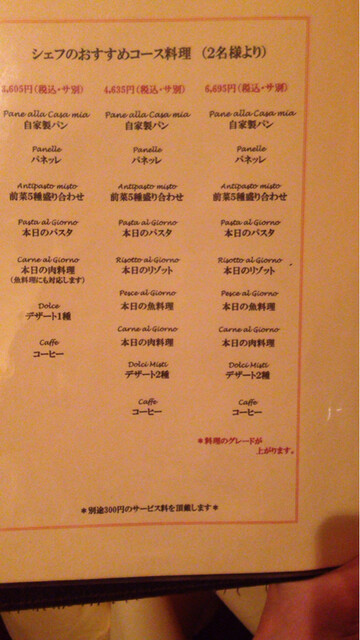 シェフのおすすめコース料理 （2名様より）
3,605円（税込・サ別）
Pane alla Casa mia
自家製パン
Panelle
パネッレ
Antipasto misto
前菜5種盛り合わせ
Pasta al Giorno
本日のパスタ
Carne al Giorno
本日の肉料理
（魚料理にも対応します）
Dolce
デザート1種
Caffe
コーヒー
4,635円（税込・サ別）
Pane alla Casa mia
自家製パン
Panelle
パネッレ
Antipasto misto
前菜5種盛り合わせ
Pasta al Giorno
本日のパスタ
Risotto al Giorno
本日のリゾット
Pesce al Giorno
本日の魚料理
Carne al Giorno
本日の肉料理
Dolci Misti
デザート2種
Caffe
コーヒー
6,695円（税込・サ別）
Pane alla Casa mia
自家製パン
Panelle
パネッレ
Antipasto misto
前菜5種盛り合わせ
Pasta al Giorno
本日のパスタ
Risotto al Giorno
本日のリゾット
Pesce al Giorno
本日の魚料理
Carne al Giorno
本日の肉料理
Dolci Misti
デザート2種
Caffe
コーヒー
＊料理のグレードが
上がります。
＊別途300円のサービス料を頂戴します＊